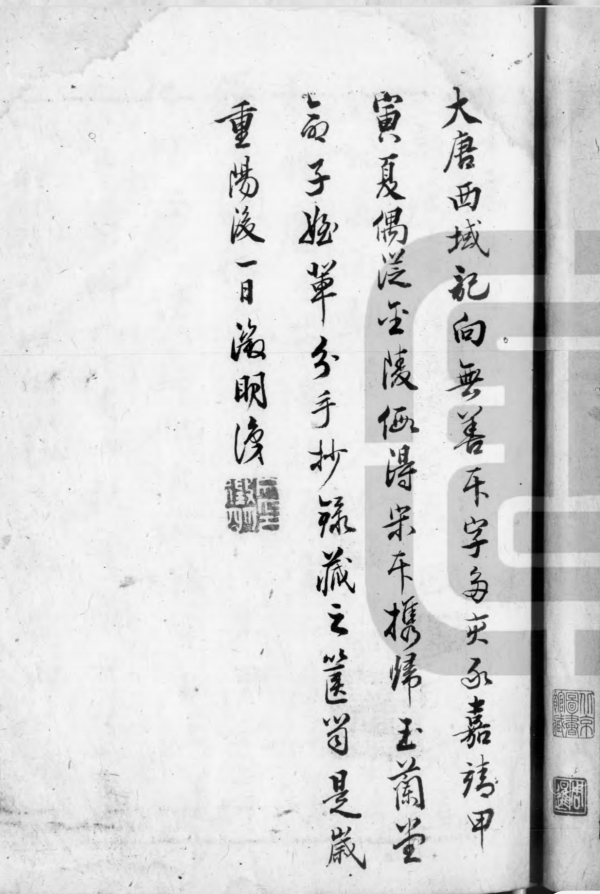 大唐西域記向無善本字多亥豕嘉靖甲
寅夏偶從金陵假得宋本攜歸玉蘭堂
命子姪輩分手抄錄藏之篋笥是歲
重陽後一日徵明識
北京
圖書
館藏